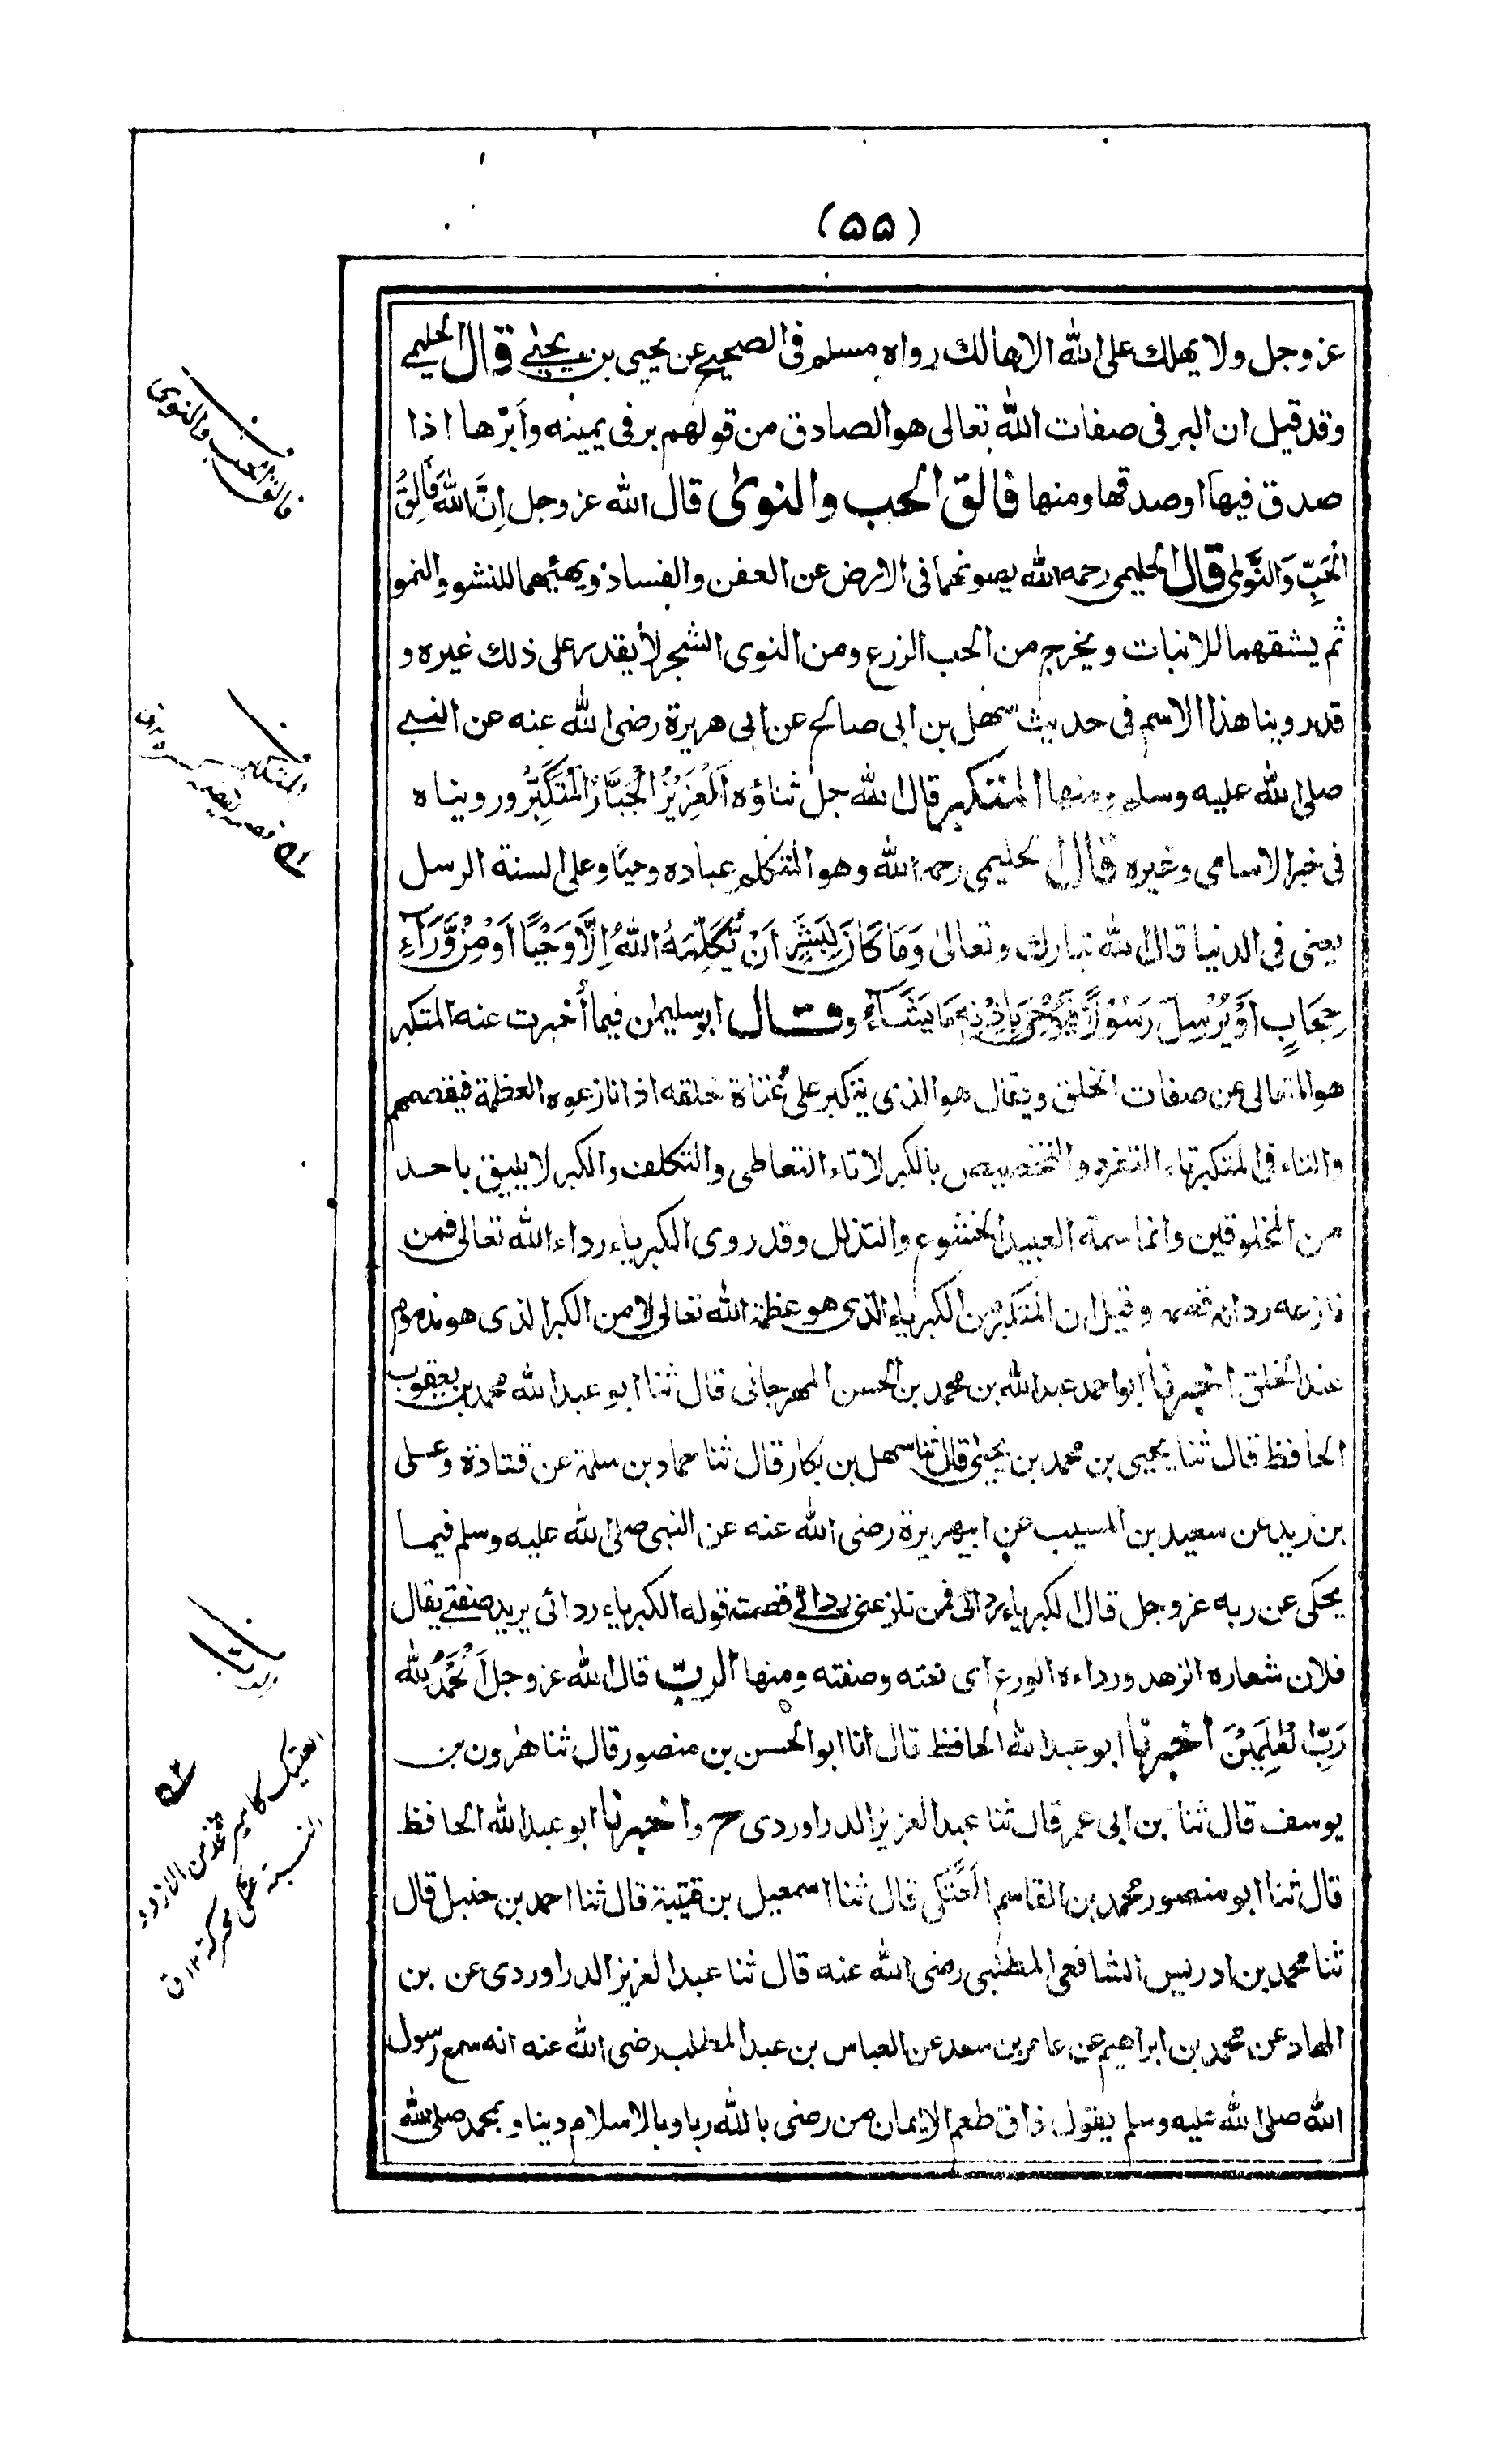 (۵۵)
عز وجل ولا يهلك على الله الا هالك رواه مسلم فى الصحيح عن يحيى بن يحيى قال الحليمى
وقد قيل ان البر فى صفات الله تعالى هو الصادق من قولهم بر فى يمينه وأبرّها اذا
صدق فيها او صدقها ومنها فالق الحب والنوى قال الله عز وجل اِنَّ اللّٰهَ فَالِقُ
الْحَبِّ وَالنَّوٰى قال الحليمى رحمه الله يصونهما فى الارض عن العفن والفساد ويهيئهما للنشو والنمو
ثم يشقهما للانبات ويخرج من الحب الزرع ومن النوى الشجر لا يقدر على ذلك غيره و
قد روينا هذا الاسم فى حديث سهل بن ابى صالح عن ابى هريرة رضى الله عنه عن النبى
صلى الله عليه وسلم ومنها المتكبر قال الله جل ثناؤه اَلْعَزِيْزُ الْجَبَّارُ الْمُتَكَبِّرُ وروينا ه
فى خبر الاسامى وغيره قال الحليمى رحمه الله وهو المتكلم عباده وحيًا وعلى السنة الرسل
يعنى فى الدنيا قال الله تبارك وتعالى وَمَا كَانَ لِبَشَرٍ اَنْ يُّكَلِّمَهُ اللّٰهُ اِلَّا وَحْيًا اَوْ مِنْ وَّرَآءِ
حِجَابٍ اَوْ يُرْسِلَ رَسُوْلًا فَيُوْحِىَ بِاِذْنِهٖ مَا يَشَآءُ وقال ابو سليمٰن فيما أخبرت عنه المتكبر
هو المتعالى عن صفات الخلق ويقال هو الذى يتكبر على عُتاة خلقه اذا نازعوه العظمة فيقصمهم
والتاء فى المتكبر تاء التفرد والتخصيص بالكبر لا تاء التعاطى والتكلف والكبر لا يليق باحد
من المخلوقين وانما سمة العبيد الخشوع والتذلل وقد روى الكبرياء رداء الله تعالى فمن
نازعه رداءه قصمه وقيل ان المتكبر من الكبرياء الذى هو عظمة الله تعالى لا من الكبر الذى هو مذموم
عند الخلق اخبرنا ابو احمد عبد الله بن محمد بن الحسن المهرجانى قال ثنا ابو عبد الله محمد بن يعقوب
الحافظ قال ثنا يحيى بن محمد بن يحيى قال ثنا سهل بن بكار قال ثنا حماد بن سلمة عن قتادة وعلى
بن زيد عن سعيد بن المسيب عن ابيهريرة رضى الله عنه عن النبى صلى الله عليه وسلم فيما
يحكى عن ربه عز وجل قال الكبرياء ردائى فمن نازعنى ردائى قصمته قوله الكبرياء ردائى يريد صفتى يقال
فلان شعاره الزهد ورداءه الورع اى نعته وصفته ومنها الربّ قال الله عز وجل اَلْحَمْدُ لِلّٰهِ
رَبِّ الْعٰلَمِيْنَ اخبرنا ابو عبد الله الحافظ قال انا ابو الحسن بن منصور قال ثنا هٰرون بن
يوسف قال ثنا بن ابى عمر قال ثنا عبد العزيز الدراوردى ح واخبرنا ابو عبد الله الحافظ
قال ثنا ابو منصور محمد بن القاسم العَتَكى قال ثنا اسمعيل بن قتيبة قال ثنا احمد بن حنبل قال
ثنا محمد بن ادريس الشافعى المطلبى رضى الله عنه قال ثنا عبد العزيز الدراوردى عن بن
الهاد عن محمد بن ابراهيم عن عامر بن سعد عن العباس بن عبد المطلب رضى الله عنه انه سمع رسول
الله صلى الله عليه وسلم يقول ذاق طعم الايمان من رضى بالله ربا وبالاسلام دينا وبمحمد صلى الله
فالق الحب والنوى
المتكبر
العتيك كامير فخذ من الازد و
النسبة عتكى محركة ١٢ ق